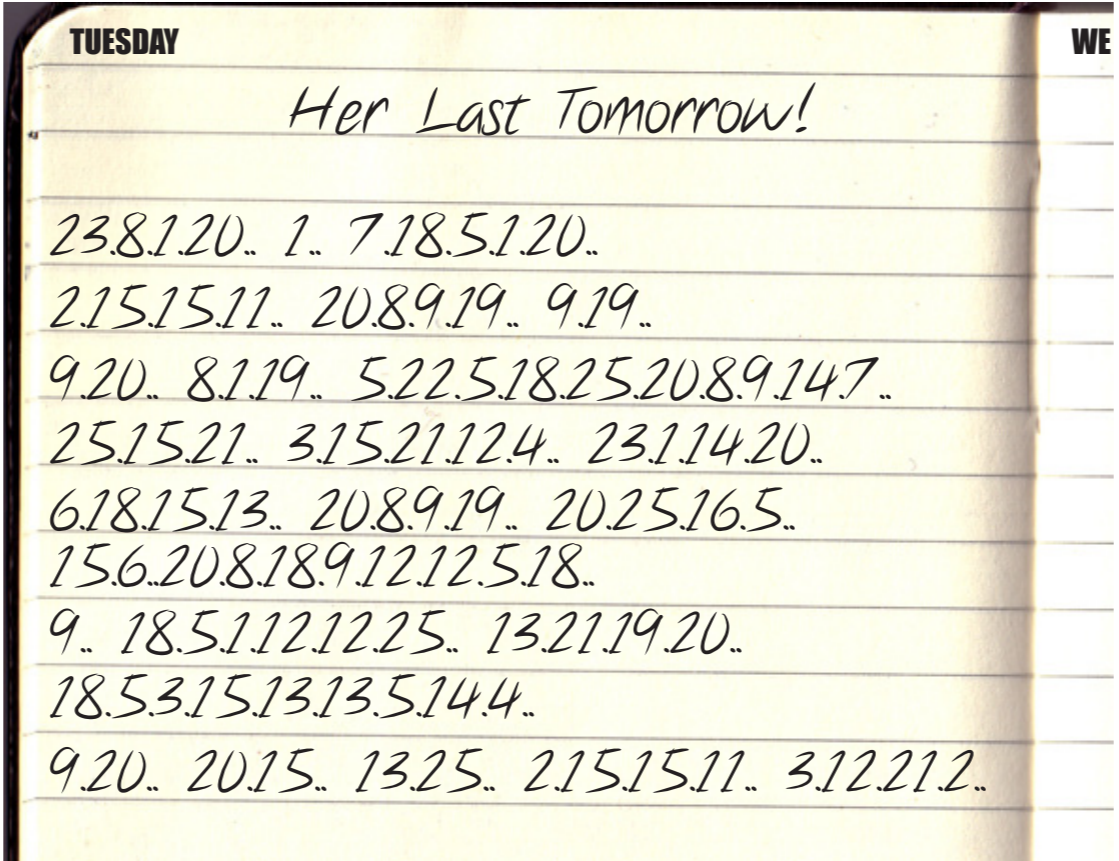 TUESDAY
WE
Her Last Tomorrow!
23.8.1.20.. 1.. 7.18.5.1.20..
2.15.15.11.. 20.8.9.19.. 9.19..
9.20.. 8.1.19.. 5.22.5.18.25.20.8.9.14.7..
25.15.21.. 3.15.21.12.4.. 23.1.14.20..
6.18.15.13.. 20.8.9.19.. 20.25.16.5..
15.6..20.8.18.9.12.12.5.18..
9.. 18.5.1.12.12.25.. 13.21.19.20..
18.5.3.15.13.13.5.14.4..
9.20.. 20.15.. 13.25.. 2.15.15.11.. 3.12.21.2..